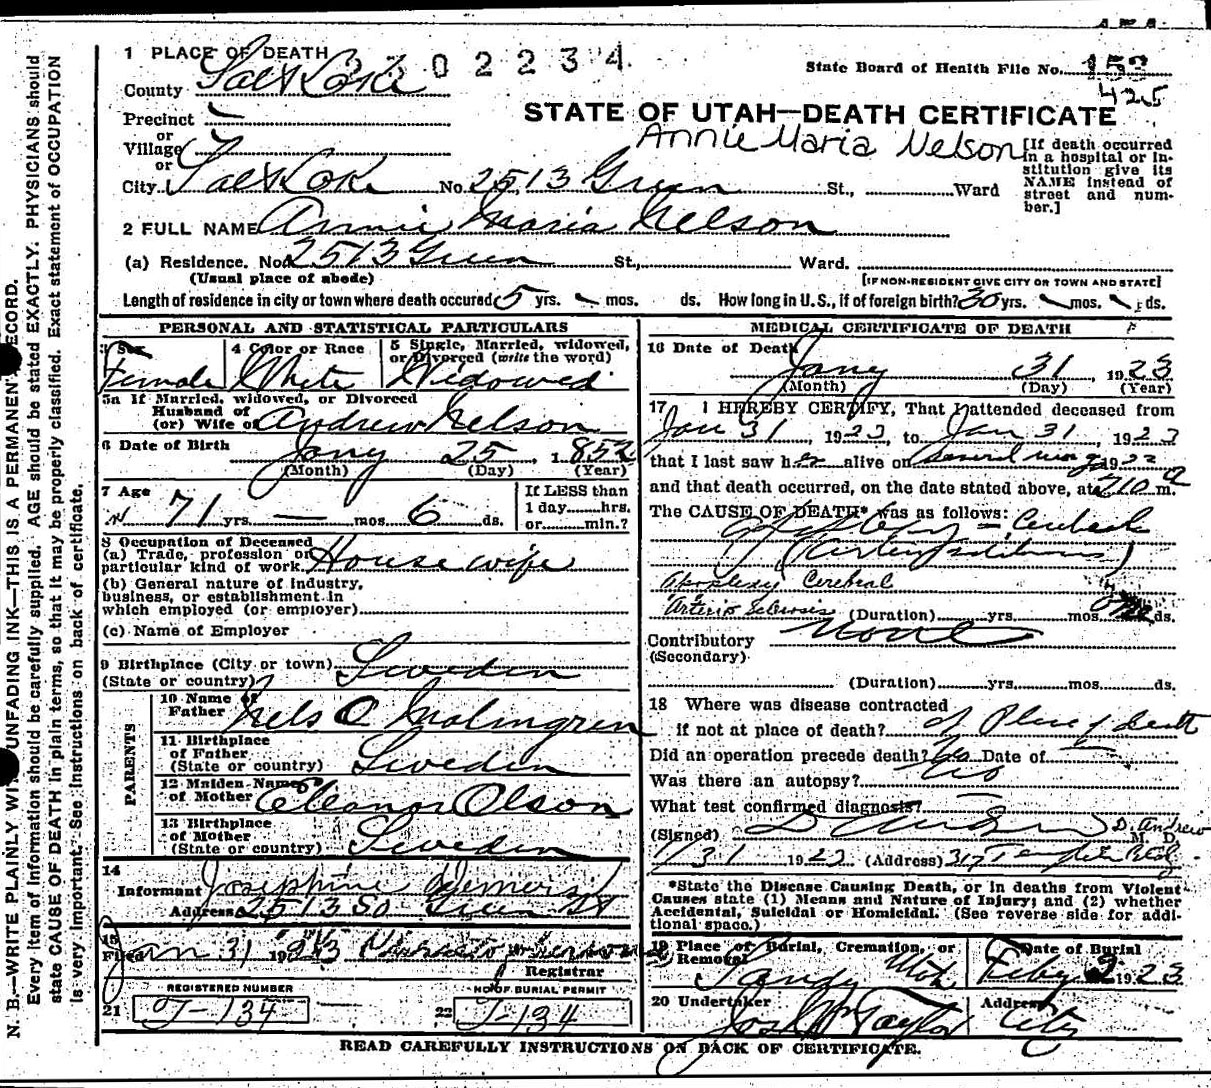 1 PLACE OF DEATH
2 3 0 2 2 3 4
State Board of Health File No. 153
425
County Salt Lake
STATE OF UTAH—DEATH CERTIFICATE
Precinct
or
Village
or
Annie Maria Nelson
[If death occurred in a hospital or institution give its NAME instead of street and number.]
City Salt Lake No. 2513 Green St., Ward
2 FULL NAME Annie Maria Nelson
(a) Residence. No. 2513 Green St., Ward.
(Usual place of abode)
[IF NON-RESIDENT GIVE CITY OR TOWN AND STATE]
Length of residence in city or town where death occured 5 yrs. mos. ds. How long in U.S., if of foreign birth? 30 yrs. mos. ds.
PERSONAL AND STATISTICAL PARTICULARS
3 Sex
Female
4 Color or Race
White
5 Single, Married, widowed, or Divorced (write the word)
Widowed
5a If Married, widowed, or Divorced
Husband of
(or) Wife of Andrew Nelson
6 Date of Birth Jany 25, 1852
(Month) (Day) (Year)
7 Age
71 yrs. — mos. 6 ds.
If LESS than
1 day hrs.
or min.?
8 Occupation of Deceased
(a) Trade, profession or
particular kind of work. House wife
(b) General nature of industry,
business, or establishment in
which employed (or employer)
(c) Name of Employer
9 Birthplace (City or town)
(State or country) Sweden
PARENTS
10 Name of
Father Nels O Malmgren
11 Birthplace
of Father
(State or country) Sweden
12 Maiden Name
of Mother Eleanor Olson
13 Birthplace
of Mother
(State or country) Sweden
14
Informant Josephine
Address 2513 So Green St
15
Filed Jan 31 1923
Registrar
REGISTERED NUMBER
21 J-134
NO. OF BURIAL PERMIT
22 J-134
MEDICAL CERTIFICATE OF DEATH
16 Date of Death
Jany 31, 1923
(Month) (Day) (Year)
17 I HEREBY CERTIFY, That I attended deceased from
Jan 31, 1923, to Jan 31, 1923
that I last saw her alive on 1922
and that death occurred, on the date stated above, at 710 a m.
The CAUSE OF DEATH* was as follows:
Apoplexy — Cerebral
Apoplexy Cerebral
Arterio Sclerosis (Duration) yrs. mos. One ds.
Contributory None
(Secondary)
(Duration) yrs. mos. ds.
18 Where was disease contracted
if not at place of death? at Place of Death
Did an operation precede death? No Date of
Was there an autopsy? No
What test confirmed diagnosis?
(Signed) D. Andrew M. D.
1/31 1923 (Address) 317 Templeton Bldg.
*State the Disease Causing Death, or in deaths from Violent
Causes state (1) Means and Nature of Injury; and (2) whether
Accidental, Suicidal or Homicidal. (See reverse side for additional space.)
19 Place of Burial, Cremation, or
Removal
Sandy Utah
Date of Burial
Feby 2 1923
20 Undertaker
Jos Wm Taylor
Address
City
READ CAREFULLY INSTRUCTIONS ON BACK OF CERTIFICATE.
N. B.—WRITE PLAINLY WITH UNFADING INK—THIS IS A PERMANENT RECORD.
Every item of information should be carefully supplied. AGE should be stated EXACTLY. PHYSICIANS should
state CAUSE OF DEATH in plain terms, so that it may be properly classified. Exact statement of OCCUPATION
is very important. See instructions on back of certificate.